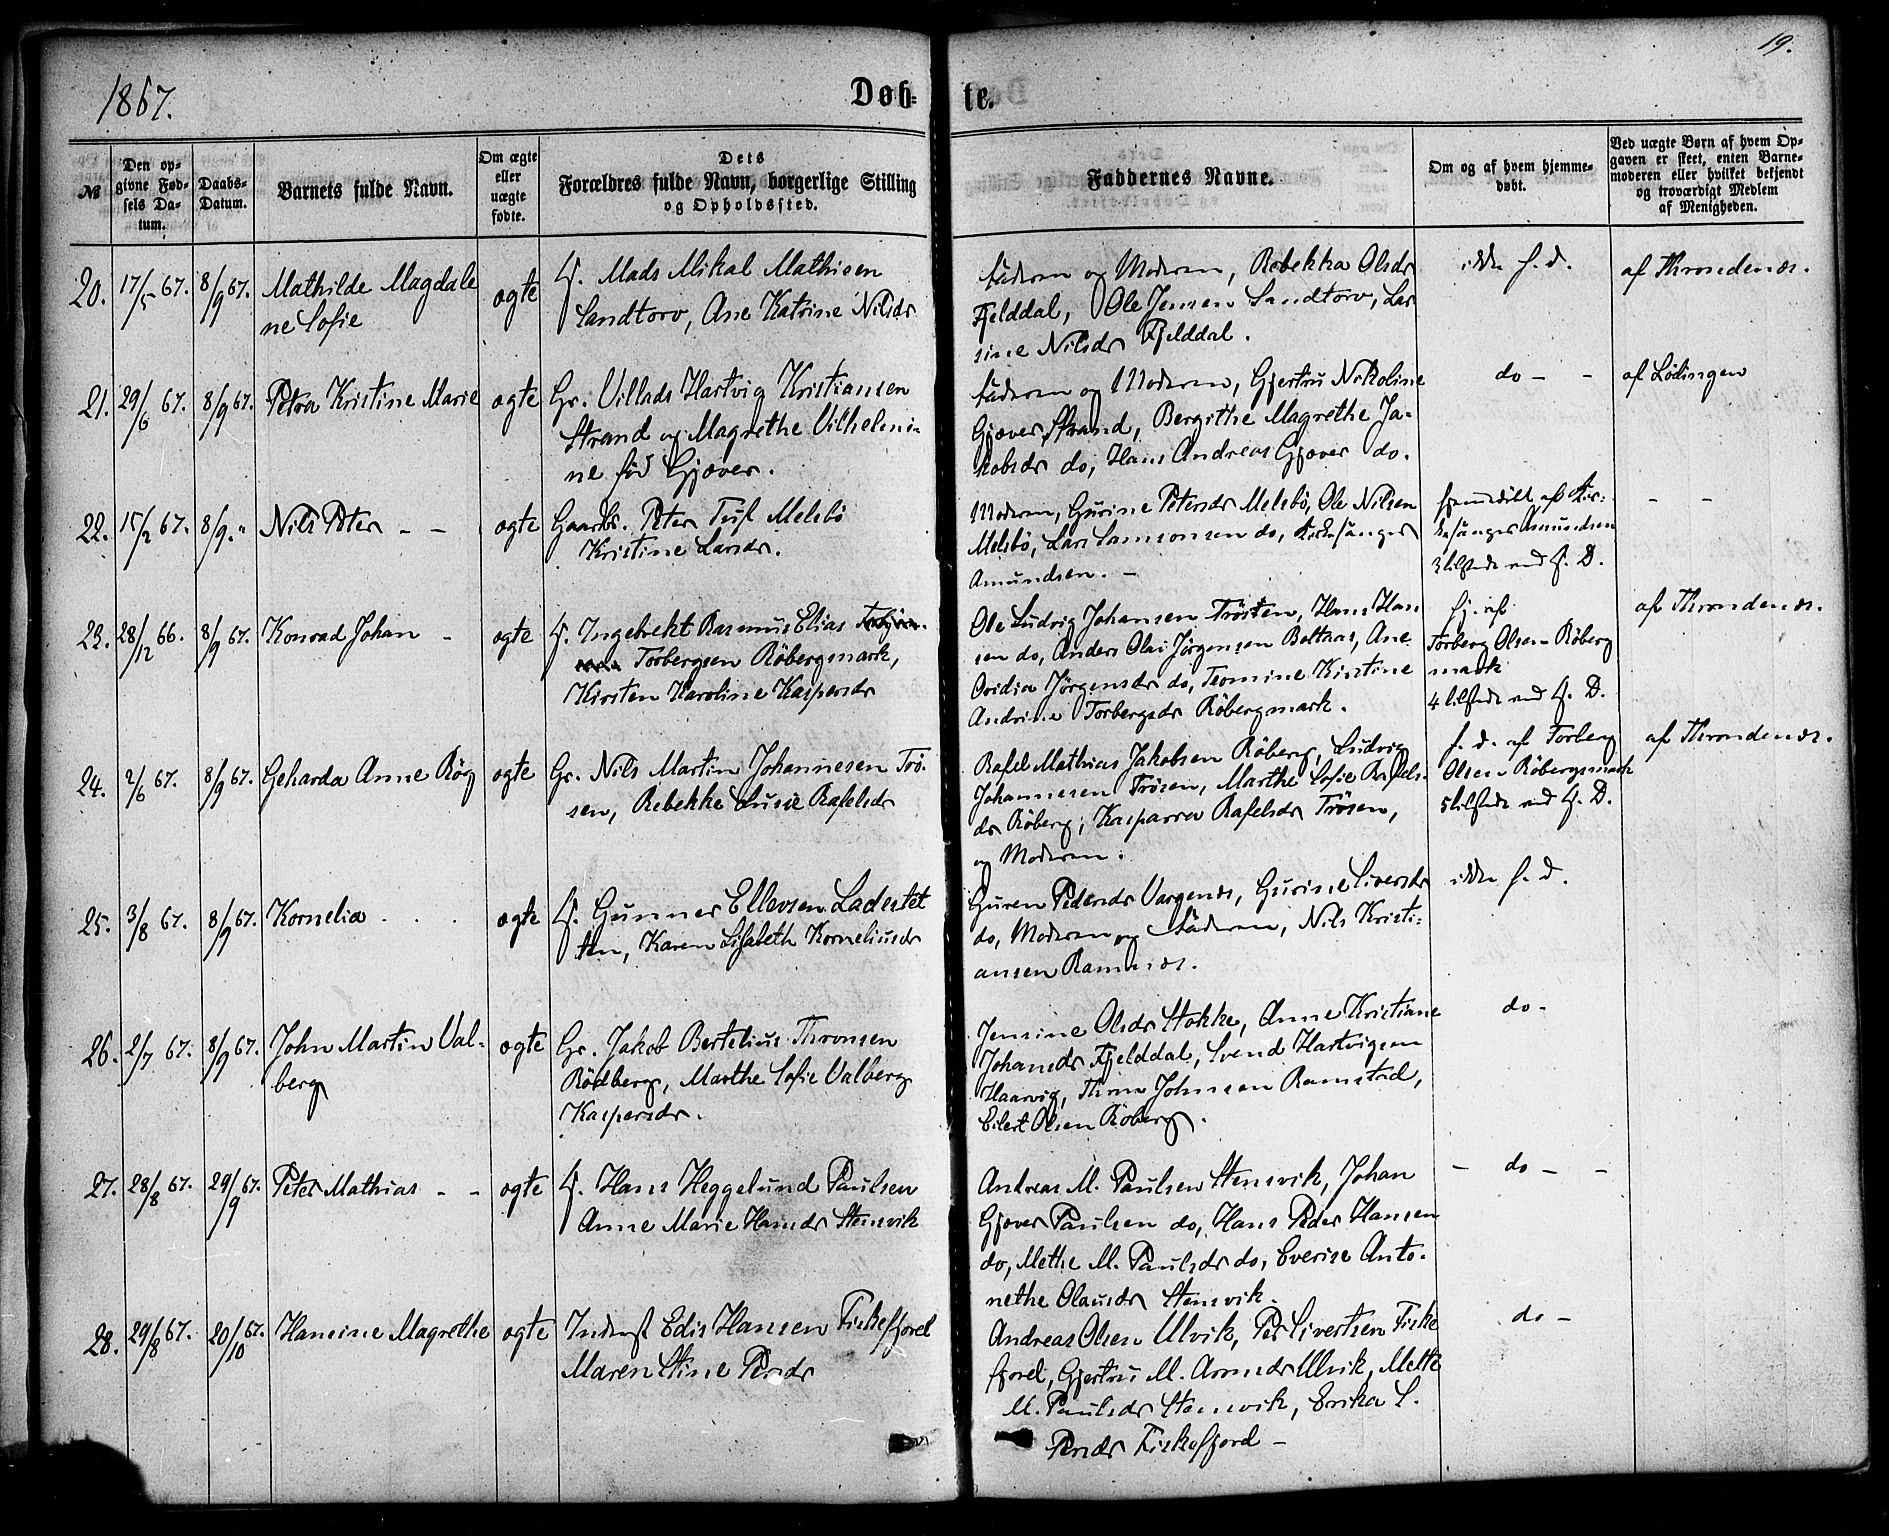 19.
1867.
Døb- te.
№
Den opgivne Fødsels Datum.
Daabs-Datum.
Barnets fulde Navn.
Om ægte eller uægte fødte.
Dets Forældres fulde Navn, borgerlige Stilling og Opholdssted.
Faddernes Navne.
Om og af hvem hjemmedøbt.
Ved uægte Børn af hvem Opgaven er skeet, enten Barnemoderen eller hvilket bekjendt og troværdigt Medlem af Menigheden.
20. 17/5 67. 8/9 67. Mathilde Magdale
ne Sofie
ægte
Mads Mikal Mathisen
Sandtorv, Ane Katrine Nilsdr
Faderen og Moderen, Rebekka Olsdr
Fjelddal, Ole Jensen Sandtorv, Lar
sine Nilsdr Fjelddal.
ikke h. d.
af Throndenæs.
21. 29/6 67. 8/9 67. Petra Kristine Marie
ægte
Gr. Villads Hartvig Kristiansen
Strand og Magrethe Vilhelmi-
ne fød Gjæver.
Faderen og Moderen, Gjertru Nikoline
Gjæver Strand, Bergithe Magrethe Ja-
kobsdr do, Hans Andreas Gjæver do.
do - -
af Lødingen
22. 15/2 67. 8/9 " Nils Peter - -
ægte
Gaardb. Peter Tufl Melsbø
Kristine Larsdr.
Moderen, Gurine Petersdr Melsbø, Ole Nilsen
Melsbø, Lars Samsonsen do, Kirkesanger
Amundsen. -
hjemdøbt af Kir-
kesanger Amundsen
3 tilstede ved h. D.
- -
23. 28/12 66. 8/9 67. Konrad Johan -
ægte
Ingebrekt Rasmus Elias
Torbergsen Røbergmark,
Kirsten Karoline Kaspersdr
Ole Ludvig Johansen Trøsten, Hans Han
sen do, Anders Olai Jørgensen Boltaas, Ane
Ovidia Jørgensdr do, Tromine Kirstine
Andrine Torbergsdr Røbergmark.
hj. af
Torberg Olsen Røberg
mark
4 tilstede ved h. D.
af Throndenæs.
24. 2/6 67. 8/9 67. Geharda Anne Røg
ægte
Gr. Nils Martin Johannesen Trø-
sen, Rebekke Lusie Rafelsdr
Rafel Mathias Jakobsen Røberg, Ludvig
Johannesen Trøsen, Marthe Sofie Rafels-
dr Røberg, Kasparra Rafelsdr Trøsen,
og Moderen.
h. d. af Torberg
Olsen Røbergsmark
5 tilstede ved h. D.
af Throndenæs.
25. 3/8 67. 8/9 67. Kornelia - - -
ægte
Gunner Ellevsen Ladestet
ten, Karen Lisabeth Korneliusdr
Guren Pedersdr Vargenæs, Gurine Siversdr
do, Moderen og Faderen, Nils Kristi-
ansen Ramnæs.
ikke h. d.
26. 2/7 67. 8/9 67. John Martin Val-
berg
ægte
Gr. Jakob Bertelius Thronsen
Rødberg, Marthe Sofie Valberg
Kaspersdr.
Jensine Olsdr Stokke, Anne Kristiane
Johansdr Fjelddal, Svend Hartvigsen
Haarvig, Thron Johnsen Ramstad,
Eilert Olsen Røberg.
do-
27. 28/8 67. 29/9 67. Peter Mathias - -
ægte
Hans Heggelund Paulsen
Anne Marie Hansdr Stensvik
Andreas M. Paulsen Stensvik, Johan
Gjæver Paulsen do, Hans Peder Hansen
do, Methe M. Paulsdr do, Everise Anto-
nethe Olausdr Stensvik.
- do - -
28. 29/8 67. 20/10 67. Hansine Magrethe
ægte
Inderst Edis Hansen Fiskefjord
Maren Stine Persdr
Andreas Olsen Ulvik, Per Sivertsen Fiske
fjord, Gjertru M. Arnsdr Ulvik, Mette
M. Paulsdr Stensvik, Erika S.
Persdr Fiskefjord -
do -